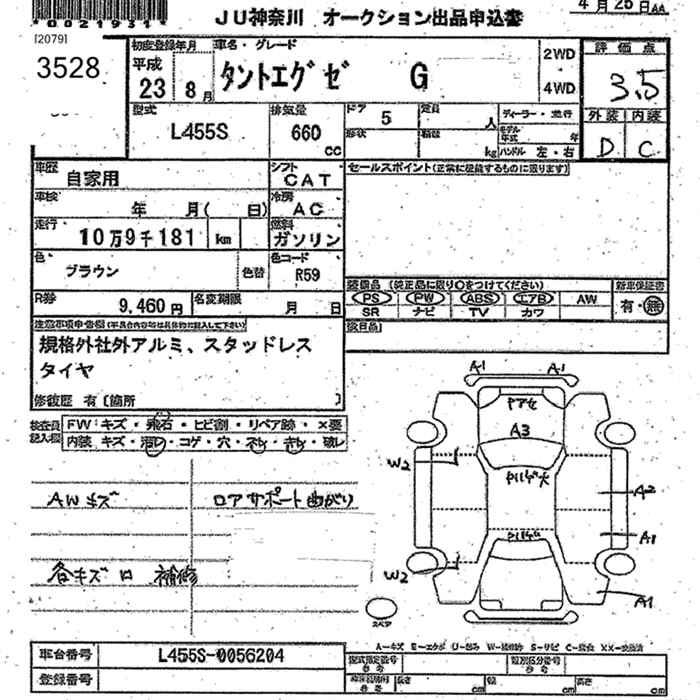 *00219311*
4月25日
JU神奈川 オークション出品申込書
[2079]
3528
初度登録年月
車名・グレード
評価点
平成
23 8月
タントエグゼ G
2WD
4WD
3.5
型式
排気量
ドア
定員
外装 内装
L455S
660
cc
5
人
形状
kg
ハンドル 左・右
D C
車歴
自家用
シフト
CAT
セールスポイント(正常に機能するものに限ります)
車検
年 月( 日)
冷房
AC
走行
10万9千181 km
燃料
ガソリン
色
ブラウン
色替
色コード
R59
装備品 (純正品に限り○をつけてください)
新車保証書
PS PW ABS エアB AW
有・無
SR ナビ TV カワ
R券
9,460円
名変期限
月 日
注意事項申告欄
規格外社外アルミ、スタッドレス
タイヤ
修復歴 有〔箇所 〕
検査員
記入欄
FW: キズ・飛石・ヒビ割・リペア跡・×要
内装 キズ・汚レ・コゲ・穴・スレ・キレ・破レ
A1 A1
A3
W2
A2
A1
W2
A1
AWキズ
ロアサポート曲がり
各キズ 補修
スペア
車台番号
L455S-0056204
登録番号
A-キズ E-エクボ U-凹み W-補修跡 S-サビ C-腐食 XX-交換済
型式指定番号
参考
類別区分番号
参考
長さ cm
幅 cm
高さ cm